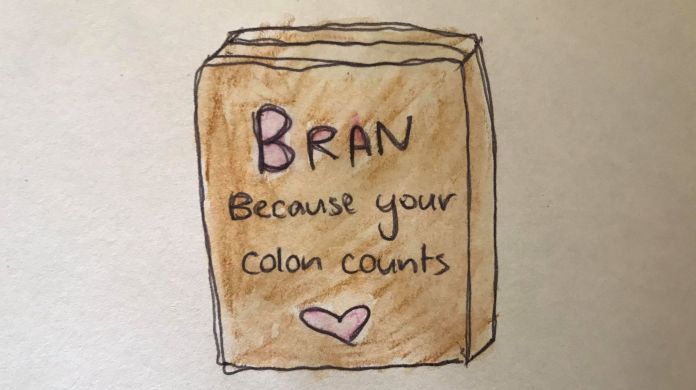 BRAN
Because your
colon counts